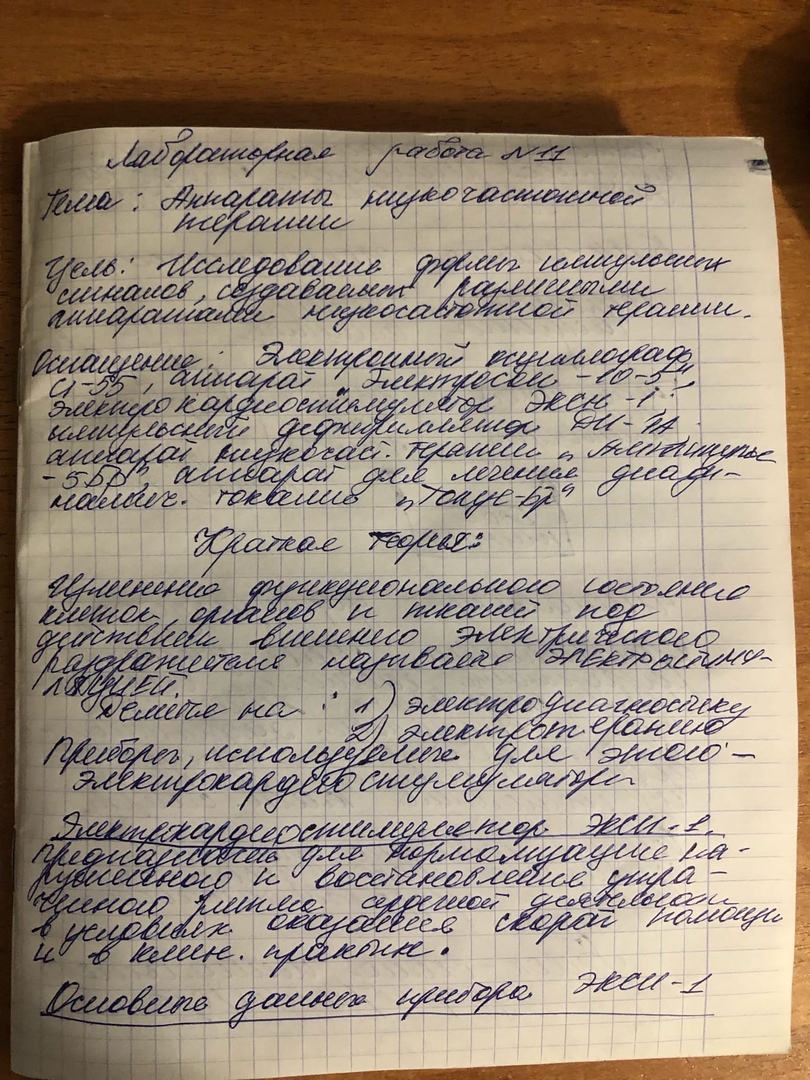 Лабораторная работа №11
Тема: Аппараты низкочастотной
терапии
Цель: Исследование формы импульсных
сигналов, создаваемых различными
аппаратами низкочастотной терапии.
Оснащение: Электронный осциллограф
С1-55, аппарат "Электросон-10-5",
электрокардиостимулятор ЭКСН-1,
импульсный дефибриллятор ДИ-
аппарат низкочаст. терапии
аппарат для лечения диади-
намич. токами "Тонус-БР"
Краткая теория:
Изменение функционального состояния
клеток, органов и тканей под
действием внешнего электрического
раздражителя называется ЭЛЕКТРостиму-
ляцией.
Делится на: 1) электродиагностику
2) электротерапию
Приборы, используемые для этого -
электрокардиостимуляторы
Электрокардиостимулятор ЭКСН-1.
Предназначен для нормализации на-
рушенного и восстановления утра-
ченного ритма сердечной деятельности
в условиях оказания скорой помощи
и в клин. практик.
Основные данные прибора ЭКСН-1